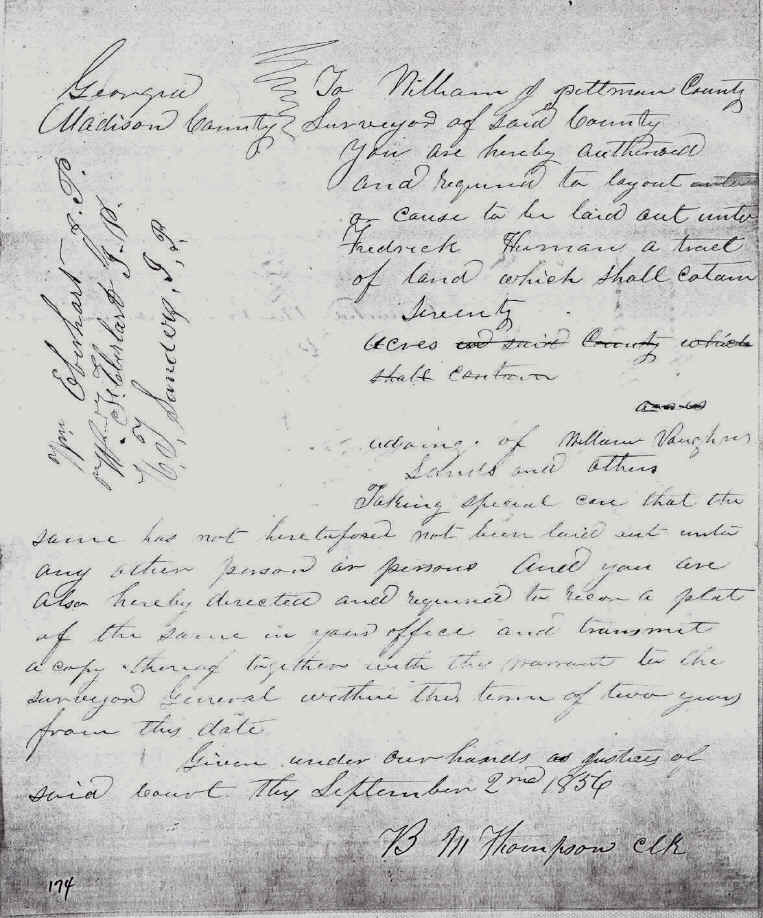 Georgia
Madison County
To William J pittman County
Surveyor of said County
You are hereby authorised
and required to layout
or cause to be laid out unto
Fredrick Human a tract
of land which shall cotain
Seventy
acres and said County which
shall contain
acres
of William Vaughns
Lands and others
Taking special care that the
same has not heretofored not been laid out unto
any other person or persons And you are
also hereby directed and required to recor a plat
of the same in your office and transmit
a copy thereof together with this warrant to the
surveyor General within this term of two years
from this date
Given under our hands as justices of
said Court this September 2nd 1856
B M Thompson clk
Wm Eberhart J. P.
Eberhart J. P.
Sanders, J, P.
174